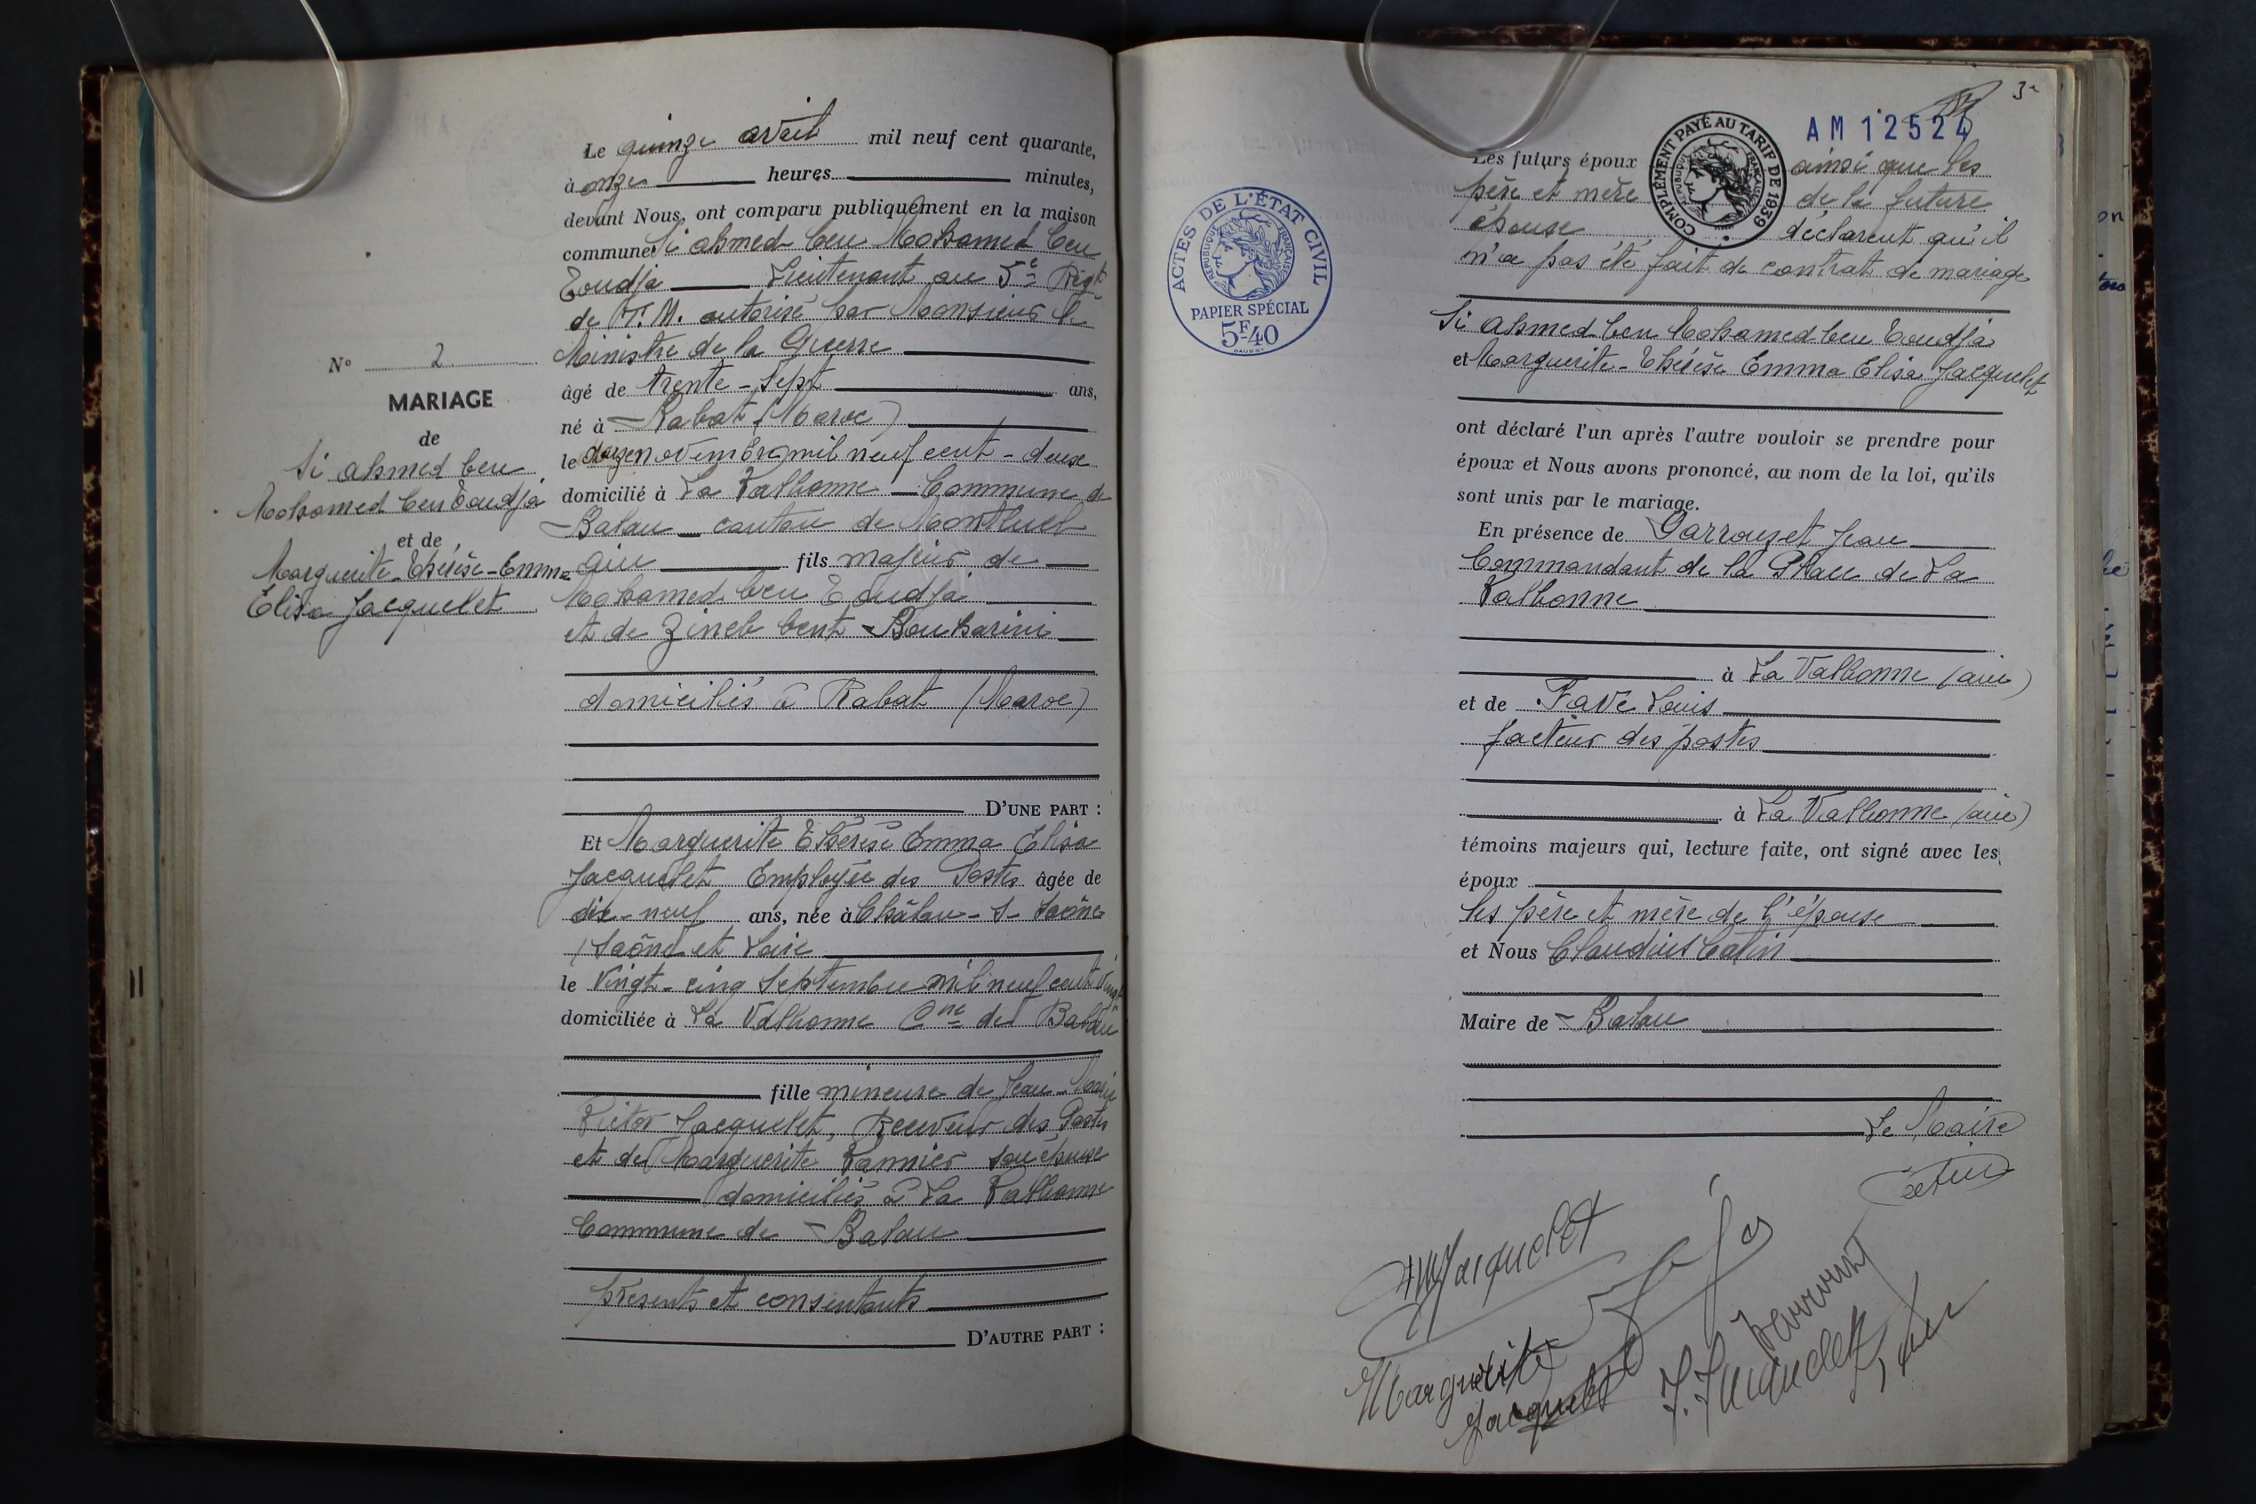 N° 2
MARIAGE
de
Si Ahmed ben
Mohamed ben Toudja
et de
Marguerite-Thérèse-Emma
Elisa Jacquelet
Le quinze avril mil neuf cent quarante,
à onze heures minutes,
devant Nous, ont comparu publiquement en la maison
commune Si Ahmed ben Mohamed ben
Toudja Lieutenant au 5e Régt
de T.M. autorisé par Monsieur le
Ministre de la Guerre
âgé de trente-sept ans,
né à Rabat (Maroc)
le douze novembre mil neuf cent-deux
domicilié à La Valbonne - Commune de
Balan - canton de Montluel
Ain fils majeur de
Mohamed ben Toudja
et de Zineb bent Boukarini
domiciliés à Rabat (Maroc)
D'UNE PART :
Et Marguerite Thérèse Emma Elisa
Jacquelet Employée des Postes âgée de
dix-neuf ans, née à Châlon-s-Saône
(Saône et Loire
le vingt-cinq septembre mil neuf cent vingt
domiciliée à La Valbonne Cne de Balan
fille mineure de Jean-Marie
Victor Jacquelet, Receveur des Postes
et de Marguerite Vannier son épouse
domiciliés à La Valbonne
Commune de Balan
présents et consentants
D'AUTRE PART :
ACTES DE L'ÉTAT CIVIL
RÉPUBLIQUE FRANÇAISE
PAPIER SPÉCIAL
5F40
3
AM 12524
COMPLÉMENT PAYÉ AU TARIF DE 1939
RÉPUBLIQUE FRANÇAISE
Les futurs époux ainsi que les
père et mère de la future
épouse déclarent qu'il
n'a pas été fait de contrat de mariage
Si Ahmed ben Mohamed ben Toudja
et Marguerite-Thérèse Emma Elisa Jacquelet
ont déclaré l'un après l'autre vouloir se prendre pour
époux et Nous avons prononcé, au nom de la loi, qu'ils
sont unis par le mariage.
En présence de Garrouzet Jean
Commandant de la Place de La
Valbonne
à La Valbonne (Ain)
et de Fave Louis
facteur des postes
à La Valbonne (Ain)
témoins majeurs qui, lecture faite, ont signé avec les
époux
les père et mère de l'épouse
et Nous Claudius Catin
Maire de Balan
Le Maire
Catin
M Jacquelet
Marguerite
Jacquelet
J. Jacquelet